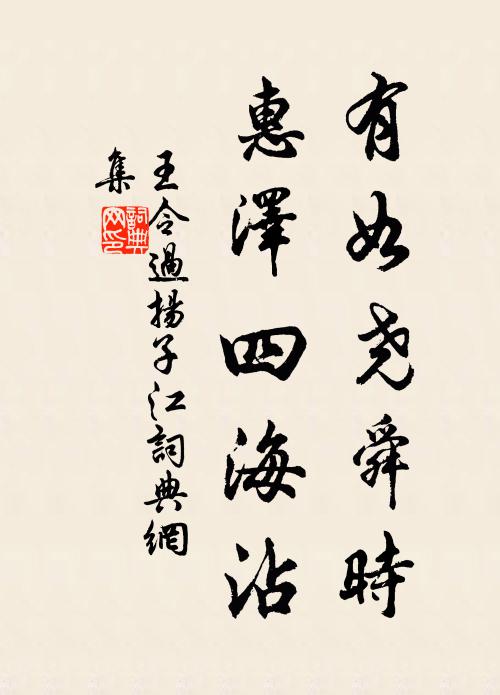 有如尧舜時
惠澤四海沾
王令過揚子江詞典網
集
詞典
网印